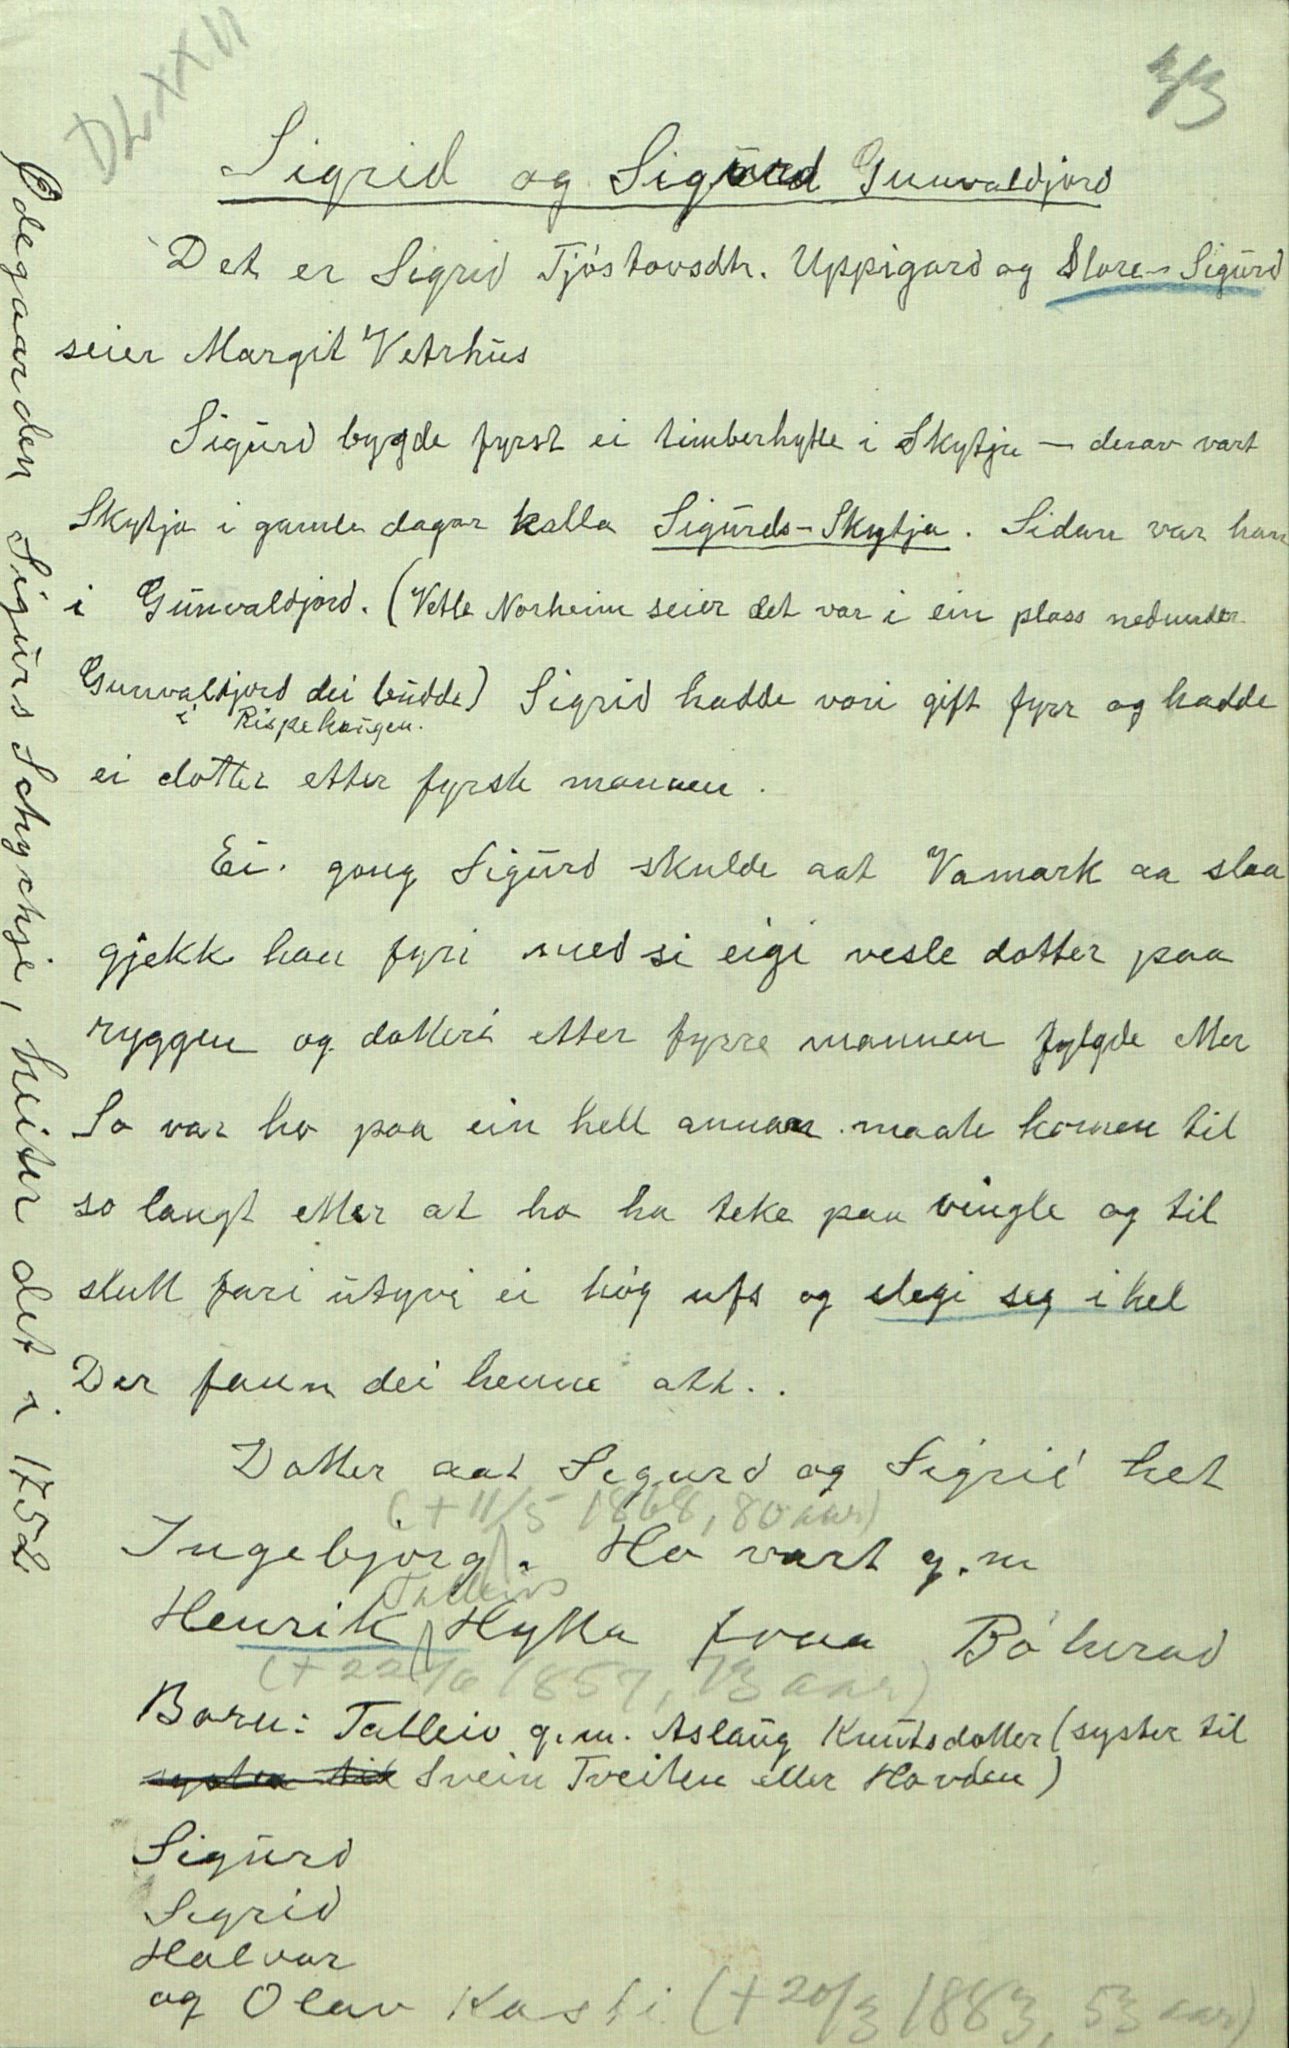 DLXXII
3/3
Sigrid og Sigurd Gunvaldjord
Det er Sigrid Tjóstovsdtr. Uppigard og Store-Sigurd
seier Margit Vetrhus
Sigurd bygde fyrst ei timberhytte i Skytju — derav vart
Skytja i gamle dagar kalla Sigurds-Skytja. Sidan var han
i Gunvaldjord. (Vetle Norheim seier det var i ein plass nedunder
Gunvaldjord dei budde) Sigrid hadde vori gift fyrr og hadde
i Rispehaugen.
ei dotter etter fyrste mannen.
Ei gong Sigurd skulde aat Vamark aa slaa
gjekk han fyri med si eigi vesle dotter paa
ryggen og dotteri etter fyrre mannen fylgde etter
So var ho paa ein hell annan maate komen til
so langt etter at ho ha teke paa vingle og til
slutt fari utyvi ei hóg ufs og slegi seg i hel
Der fann dei henne att..
Dotter aat Sigurd og Sigrid het
(+ 11/5 1868, 80 aar)
Ingebjórg. Ho vart g.m
Talleivs
Henrik Hytta fraa Bóherad
(+ 22/6 1857, 73 aar)
Born: Talleiv g.m. Aslaug Knutsdotter (syster til
syster til Svein Tveiten eller Hovden)
Sigurd
Sigrid
Halvor
og Olav Kasti (+ 20/3 1883, 53 aar)
Ödegaarden Sigurs Schychje, heiter det i 1752